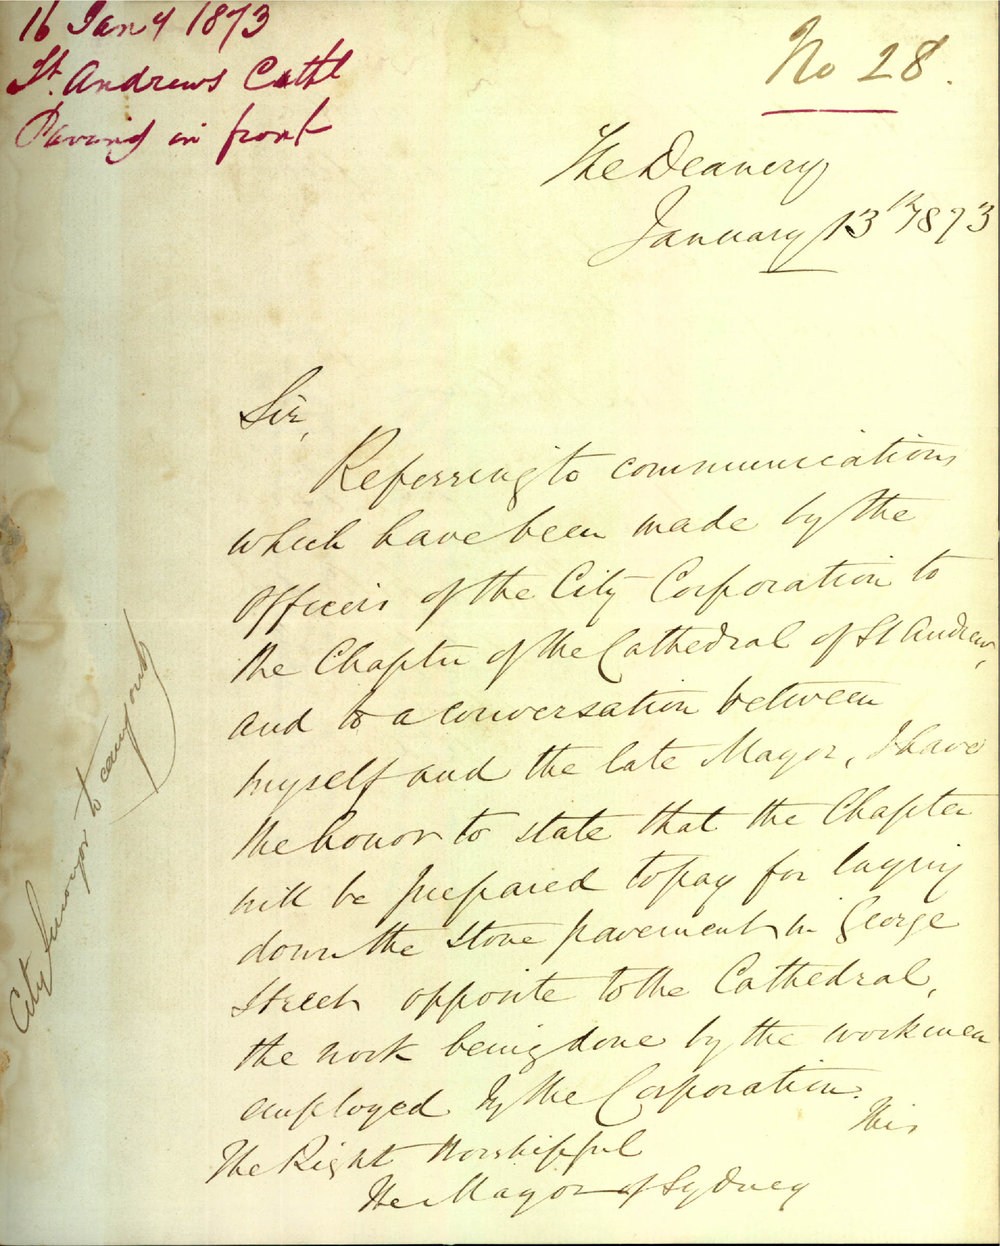 16 Jany 1873
St. Andrews Cathl
Paving in front
No 28.
The Deanery
January 13th 1873
Sir,
Referring to communications
which have been made by the
Officers of the City Corporation to
the Chapter of the Cathedral of St Andrew,
and to a conversation between
myself and the late Mayor, I have
the honor to state that the Chapter
will be prepared to pay for laying
down the stone pavement in George
Street opposite to the Cathedral,
the work being done by the workmen
employed by the Corporation.
This
The Right Worshipful
The Mayor of Sydney
City Surveyor to carry out